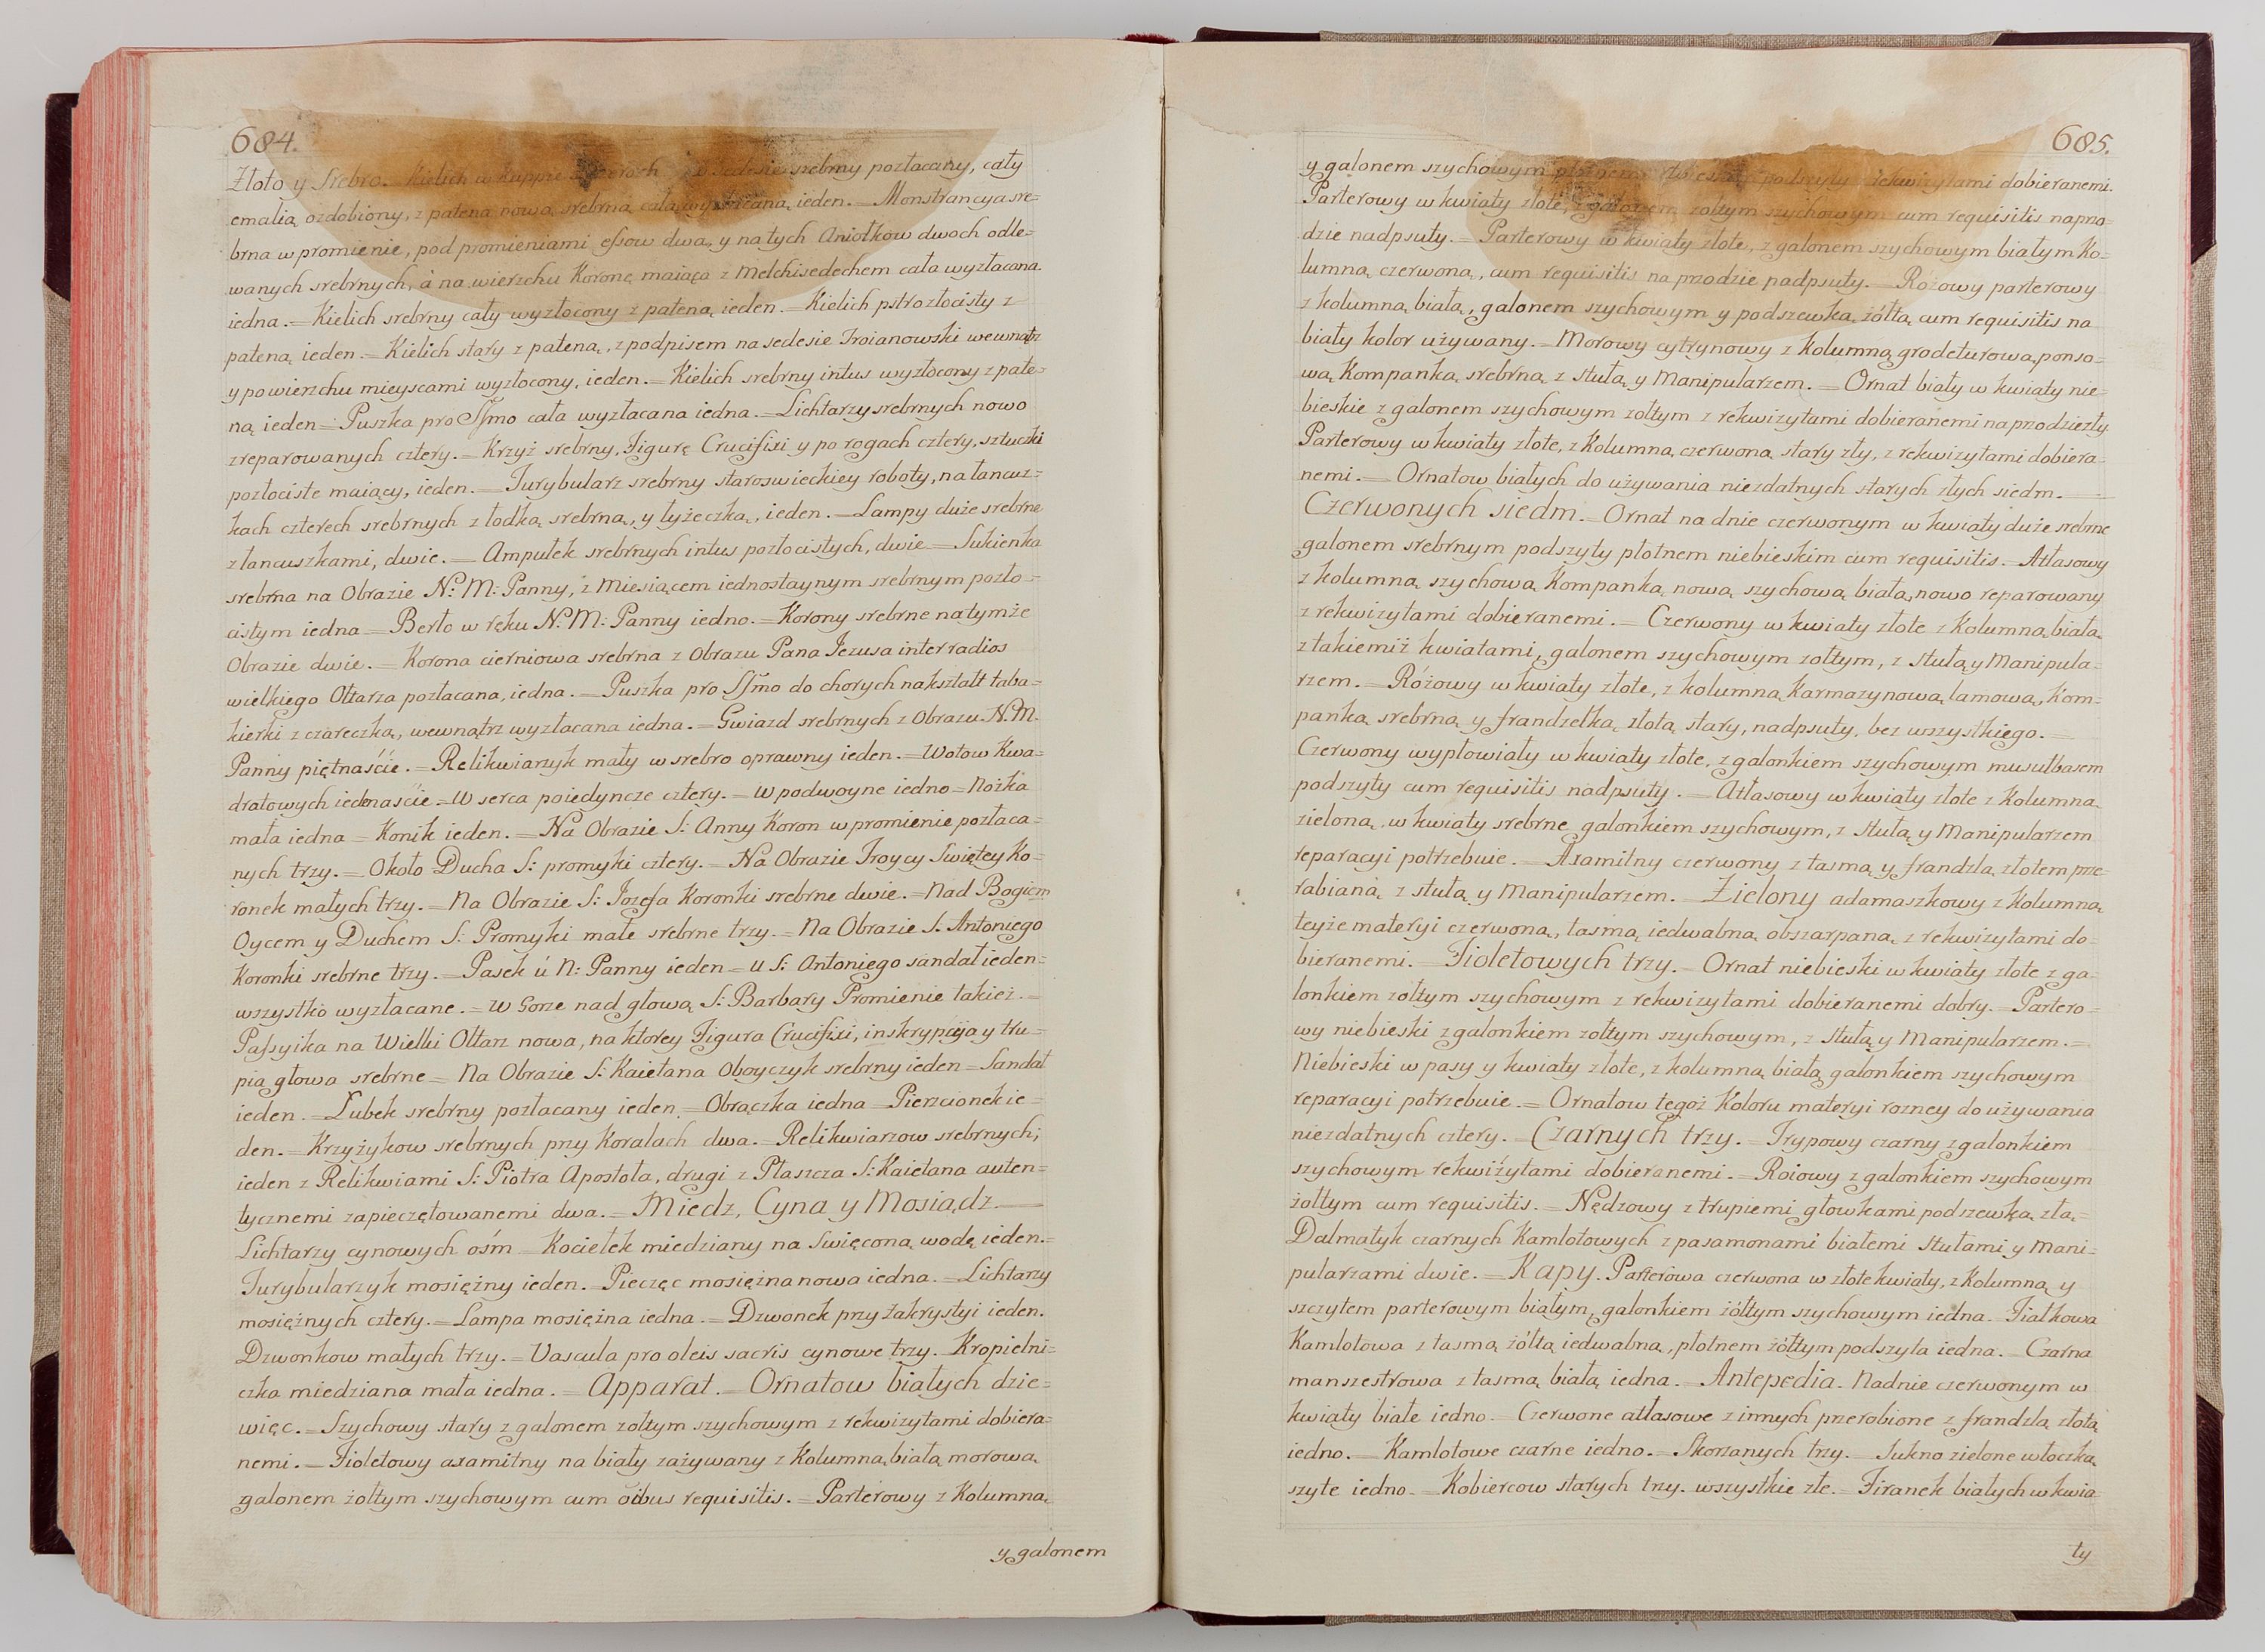 684.
Złoto y Srebro. Kielich w Kuppie srebrny pozłacany, cały
emalią ozdobiony, z pateną nową srebrną całą wyzłacaną, ieden. = Monstrancya sre=
brna w promienie, pod promieniami essow dwa, y na tych Aniołkow dwoch odle=
wanych srebrnych, à na wierzchu Koronę maiąca z Melchisedechem cała wyzłacana
iedna. = Kielich srebrny cały wyzłocony z pateną ieden. = Kielich pstrozłocisty z
pateną ieden. = Kielich stary z pateną, z podpisem na sedesie Troianowski wewnątrz
y powierzchu mieyscami wyzłocony, ieden. = Kielich srebrny intus wyzłocony z pate=
ną ieden = Puszka pro SSmo cała wyzłacana iedna. = Lichtarzy srebrnych nowo
zreparowanych cztery. = Krzyż srebrny, Figurę Crucifixi y po rogach cztery, sztuczki
pozłociste maiący, ieden. = Turybularz srebrny staroswieckiey roboty, na łancusz=
kach czterech srebrnych z łodką srebrną, y łyżeczką, ieden. = Lampy duże srebrne
z łancuszkami, dwie. = Ampułek srebrnych intus pozłocistych, dwie = Sukienka
srebrna na Obrazie N: M: Panny, z Miesiącem iednostaynym srebrnym pozło=
cistym iedna = Berło w ręku N: M: Panny iedno. = Korony srebrne na tymże
Obrazie dwie. = Korona cierniowa srebrna z Obrazu Pana Jezusa inter radios
wielkiego Ołtarza pozłacana, iedna. = Puszka pro SSmo do chorych nakształt taba=
kierki z czareczką, wewnątrz wyzłacana iedna. = Gwiazd srebrnych z Obrazu N. M.
Panny piętnaście. = Relikwiarzyk mały w srebro oprawny ieden. = Wotow Kwa=
dratowych iedenaście = W serca poiedyncze cztery. = W podwoyne iedno = Nożka
mała iedna = Konik ieden. = Na Obrazie S: Anny Koron w promienie pozłaca=
nych trzy. = Około Ducha S: promyki cztery. = Na Obrazie Troycy Swiętey Ko=
ronek małych trzy. = Na Obrazie S: Jozefa Koronki srebrne dwie. = Nad Bogiem
Oycem y Duchem S: Promyki małe srebrne trzy. = Na Obrazie S: Antoniego
Koronki srebrne trzy. = Pasek ú N: Panny ieden = u S: Antoniego sandał ieden=
wszystko wyzłacane. = W Gorze nad głową S: Barbary Promienie takież. =
Passyika na Wielki Ołtarz nowa, na ktorey Figura Crucifixi, inskrypcyja y tru=
pia głowa srebrne = Na Obrazie S: Kaietana Oboyczyk srebrny ieden = Sandał
ieden. = Łubek srebrny pozłacany ieden. = Obrączka iedna = Pierzcionek ie=
den. = Krzyżykow srebrnych przy Koralach dwa. = Relikwiarzow srebrnych;
ieden z Relikwiami S: Piotra Apostoła, drugi z Płaszcza S: Kaietana auten=
tycznemi zapieczętowanemi dwa. = Miedz, Cyna y Mosiądz.
Lichtarzy cynowych ośm = Kociełek miedziany na Swięconą wodę ieden.=
Turybularzyk mosiężny ieden. = Pieczęc mosiężna nowa iedna. = Lichtarzy
mosiężnych cztery. = Lampa mosiężna iedna. = Dzwonek przy Zakrystyi ieden.
Dzwonkow małych trzy. = Vascula pro oleis sacris cynowe trzy. Kropielni=
czka miedziana mała iedna. = Apparat. = Ornatow białych dzie=
więc. = Szychowy stary z galonem zołtym szychowym z rekwizytami dobiera=
nemi. = Fioletowy axamitny na biały zażywany z Kolumną białą morową,
galonem żołtym szychowym cum oibus requisitis. = Parterowy z Kolumną,
y galonem
685.
y galonem szychowym podszyty rekwizytami dobieranemi.
Parterowy w kwiaty złote, z galonem zołtym szychowym cum requisitis na przo=
dzie nadpsuty. = Parterowy w kwiaty złote, z galonem szychowym białym Ko=
lumną czerwoną, cum requisitis na przodzie nadpsuty. = Rożowy parterowy
z kolumną białą, galonem szychowym y podszewką żółtą cum requisitis na
biały kolor używany. = Morowy cytrynowy z Kolumną grodeturową ponso=
wą Kompanką srebrną z stułą y Manipularzem. = Ornat biały w kwiaty nie=
bieskie z galonem szychowym zołtym z rekwizytami dobieranemi na przodzie zły
Parterowy w kwiaty złote, z Kolumną czerwoną stary zły, z rekwizytami dobiera=
nemi. = Ornatow białych do używania niezdatnych starych złych siedm.
Czerwonych siedm. = Ornat na dnie czerwonym w kwiaty duże srebrne
galonem srebrnym podszyty płotnem niebieskim cum requisitis. = Atłasowy
z kolumną szychową Kompanką nową szychową białą, nowo reparowany
z rekwizytami dobieranemi. = Czerwony w kwiaty złote z Kolumną białą
z takiemiż kwiatami, galonem szychowym zołtym, z stułą y Manipula=
rzem. = Różowy w kwiaty złote, z kolumną Karmazynową lamową, Kom=
panką srebrną y frandzelką złotą stary, nadpsuty, bez wszystkiego. =
Czerwony wypłowiały w kwiaty złote, z galonkiem szychowym musułbasem
podszyty cum requisitis nadpsuty. = Atłasowy w kwiaty złote z Kolumną
zieloną w kwiaty srebrne galonkiem szychowym, z stułą y Manipularzem
reparacyi potrzebuie. = Axamitny czerwony z tasmą y frandzlą złotem prze=
rabianą z stułą y Manipularzem. Zielony adamaszkowy z Kolumną
teyże materyi czerwoną, tasmą iedwabną obszarpaną z rekwizytami do=
bieranemi. = Fioletowych trzy. = Ornat niebieski w kwiaty złote z ga=
lonkiem zołtym szychowym z rekwizytami dobieranemi dobry. = Partero=
wy niebieski z galonkiem zołtym szychowym, z stułą y Manipularzem. =
Niebieski w pasy y kwiaty złote, z kolumną białą galonkiem szychowym
reparacyi potrzebuie. = Ornatow tegoż Koloru materyi rozney do używania
niezdatnych cztery. = Czarnych trzy. = Trypowy czarny z galonkiem
szychowym rekwizytami dobieranemi. = Roiowy z galonkiem szychowym
żołtym cum requisitis. = Nędzowy z trupiemi głowkami podszewką złą=
Dalmatyk czarnych Kamlotowych z pasamonami białemi Stułami y Mani=
pularzami dwie. = Kapy. Parterowa czerwona w złote kwiaty, z Kolumną y
szczytem parterowym białym, galonkiem żółtym szychowym iedna. = Fiałkowa
Kamlotowa z tasmą żółtą iedwabną, płotnem żółtym podszyta iedna. = Czarna
manszestrowa z tasmą białą iedna. = Antepedia. Na dnie czerwonym w
kwiaty białe iedno. = Czerwone atłasowe z innych przerobione z frandzlą złotą
iedno. = Kamlotowe czarne iedno. = Skorzanych trzy. = Sukno zielone włoczką
szyte iedno. = Kobiercow starych trzy. wszystkie złe. = Firanek białych w kwia
ty